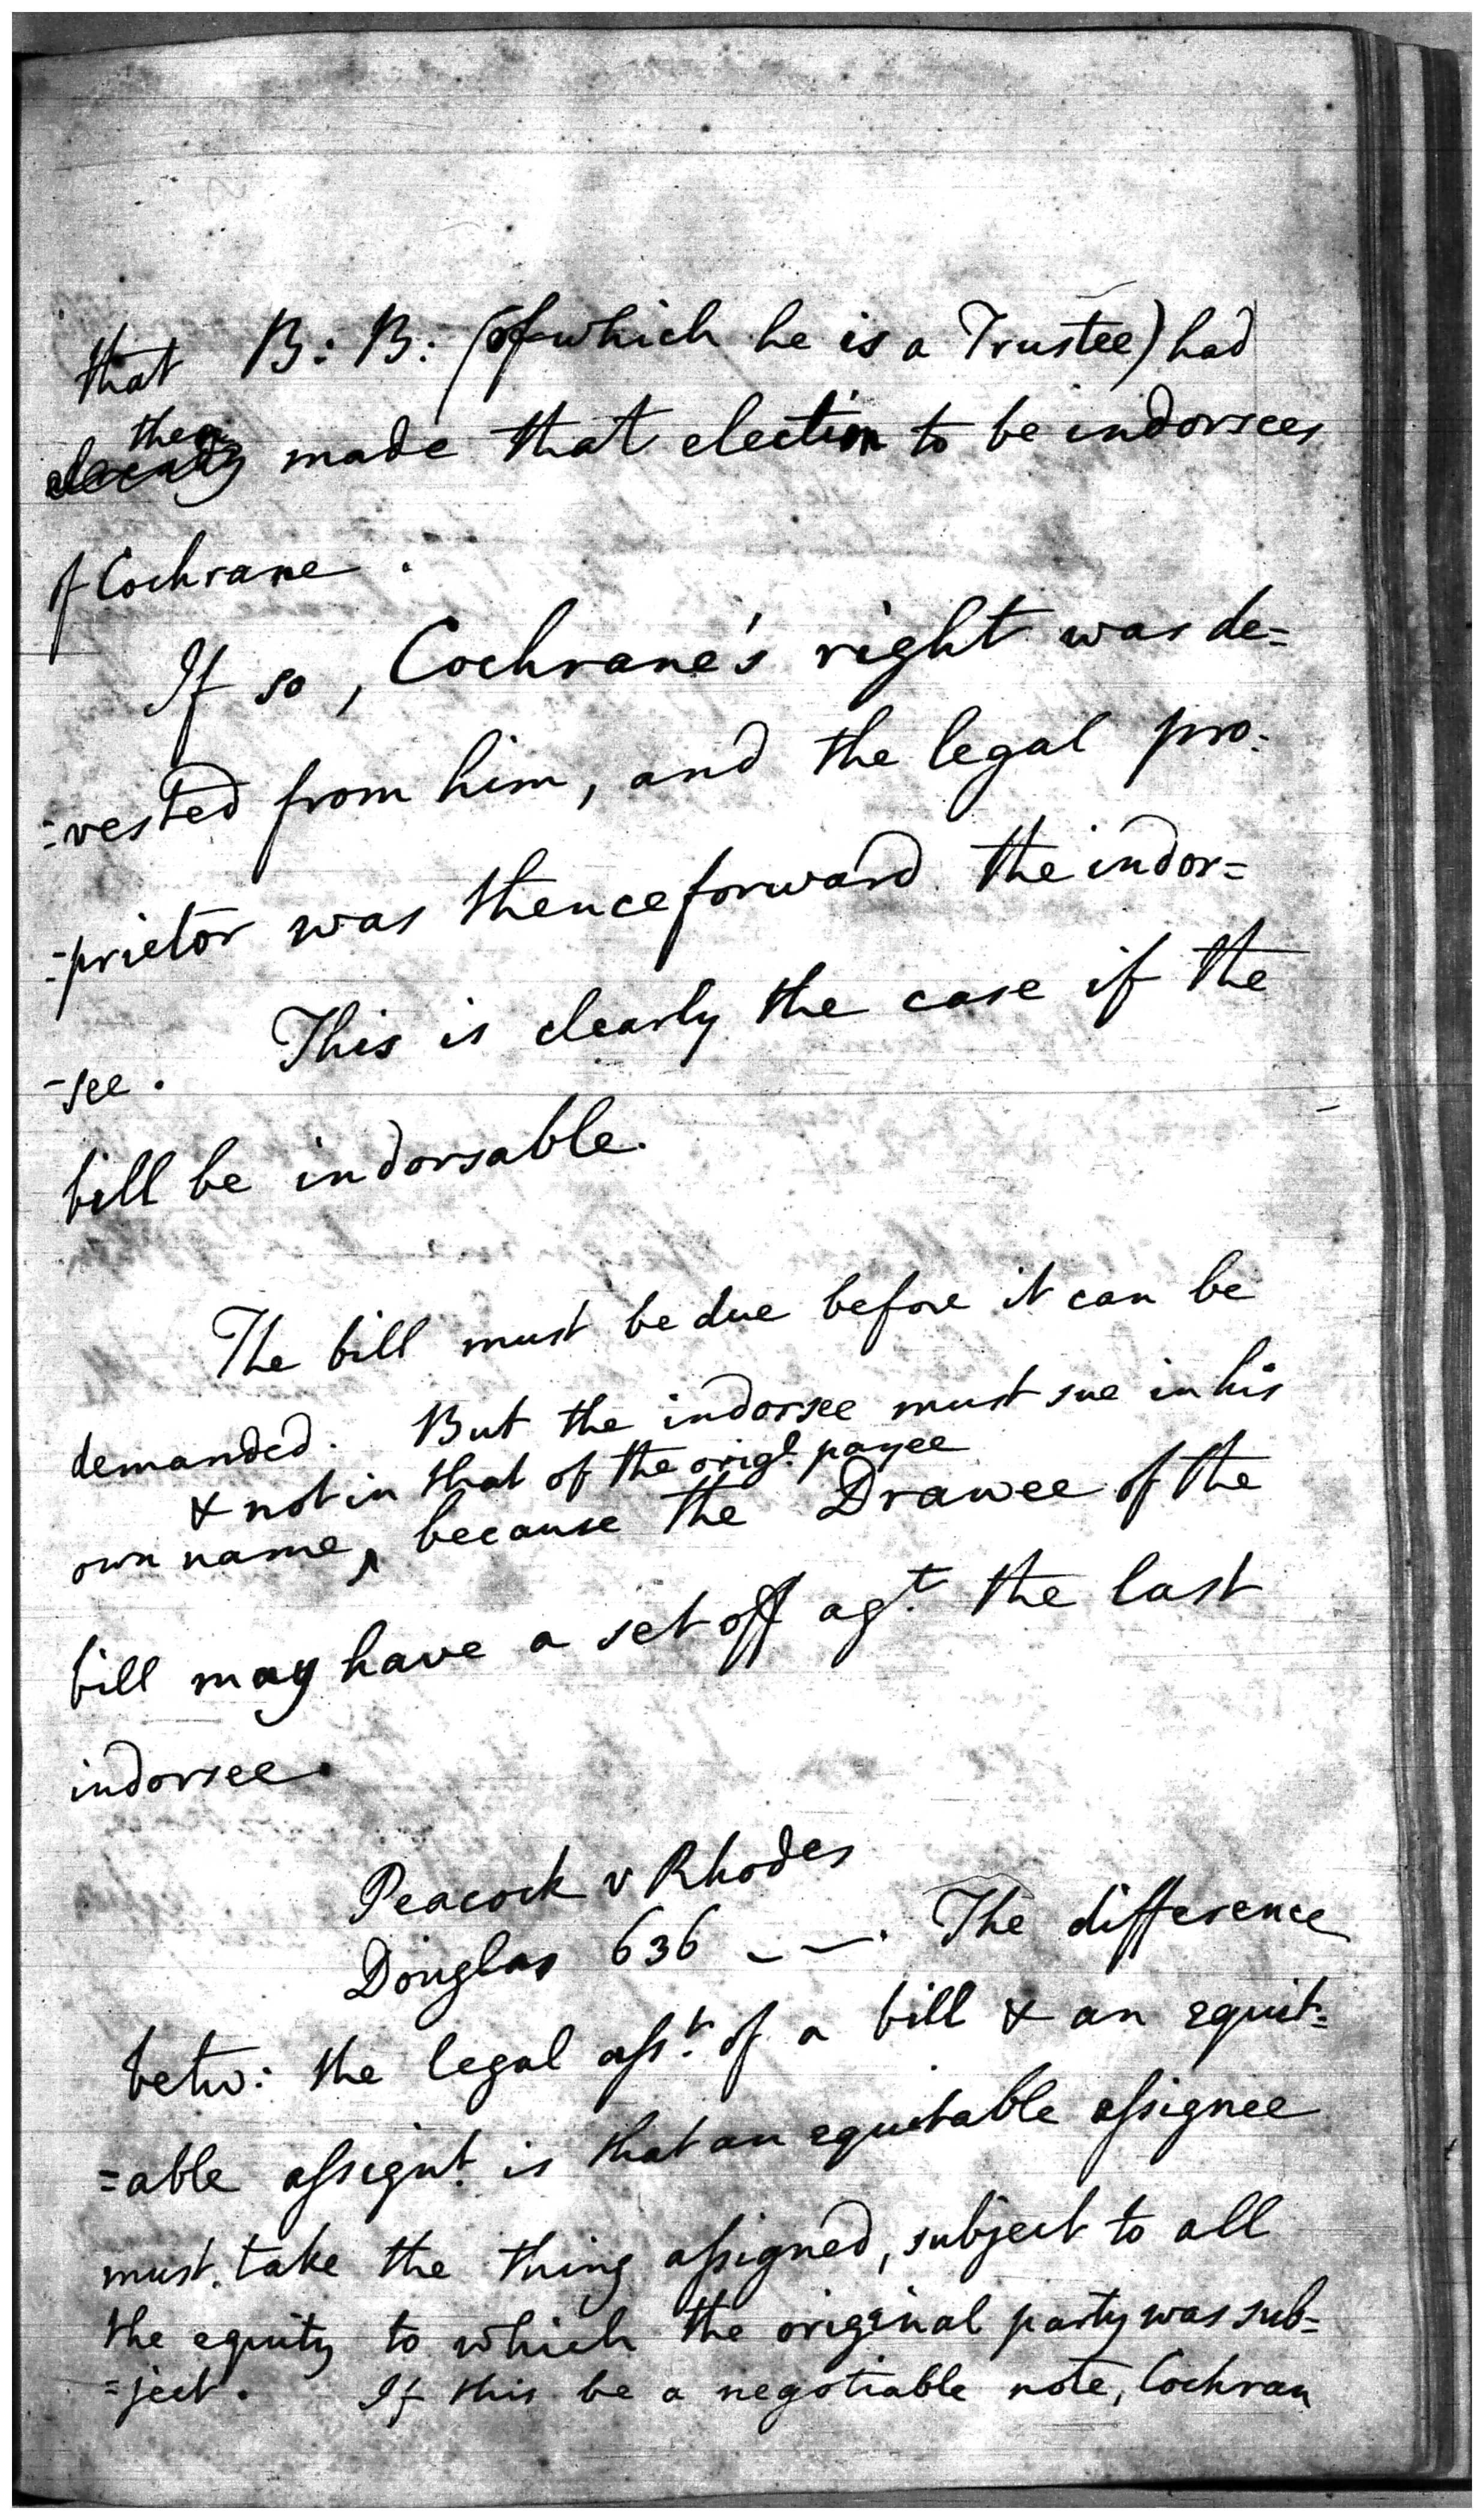 that B: B: (of which he is a Trustee) had
then
made that election to be indorsees
of Cochrane.
If so, Cochrane's right was de=
=vested from him, and the legal pro=
=prietor was thenceforward the indor=
-see. This is clearly the case if the
bill be indorsable.
The bill must be due before it can be
demanded. But the indorsee must sue in his
& not in that of the origl. payee
own name, because the Drawee of the
bill may have a set off agt. the last
indorsee.
Peacock v Rhodes
Douglas 636 ——. The difference
betw: the legal asst. of a bill & an equit=
=able assignt. is that an equitable assignee
must take the thing assigned, subject to all
the equity to which the original party was sub=
=ject. If this be a negotiable note, Cochran